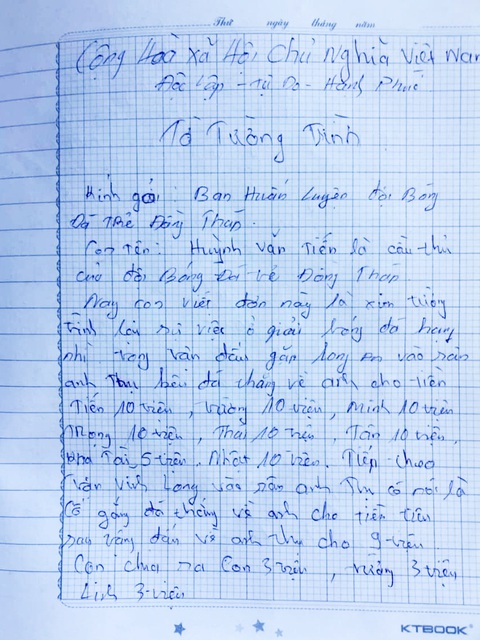 Thứ ngày tháng năm
Cộng Hoà xã Hội Chủ Nghĩa Việt Nam
Độc Lập - Tự Do - Hạnh Phúc
Tờ Tường Trình
Kính gởi: Ban Huấn Luyện đội Bóng
Đá Trẻ Đồng Tháp.
Con Tên: Huỳnh văn Tiến là cầu thủ
của đội Bóng Đá về Đồng Tháp.
Nay con viết đơn này là xin tường
trình lại sự việc ở giải bóng đá hạng
nhì vòng đấu gặp long an vào sân
anh Thu bểu đá thắng về anh cho tiền
Tiến 10 viện, vương 10 viện, Minh 10 viện
Trọng 10 viện, Thái 10 viện, Tân 10 viện,
Tài 5 viện, Nhựt 10 viện. Tiếp theo
trận vĩnh Long vào sân anh Thu có nói là
Cố gắng đá thắng về anh cho tiền tiêu
sau vòng đấu về anh thu cho 9 viện
Con chia ra Con 3 viện, vương 3 viện
Linh 3 viện
KTBOOK